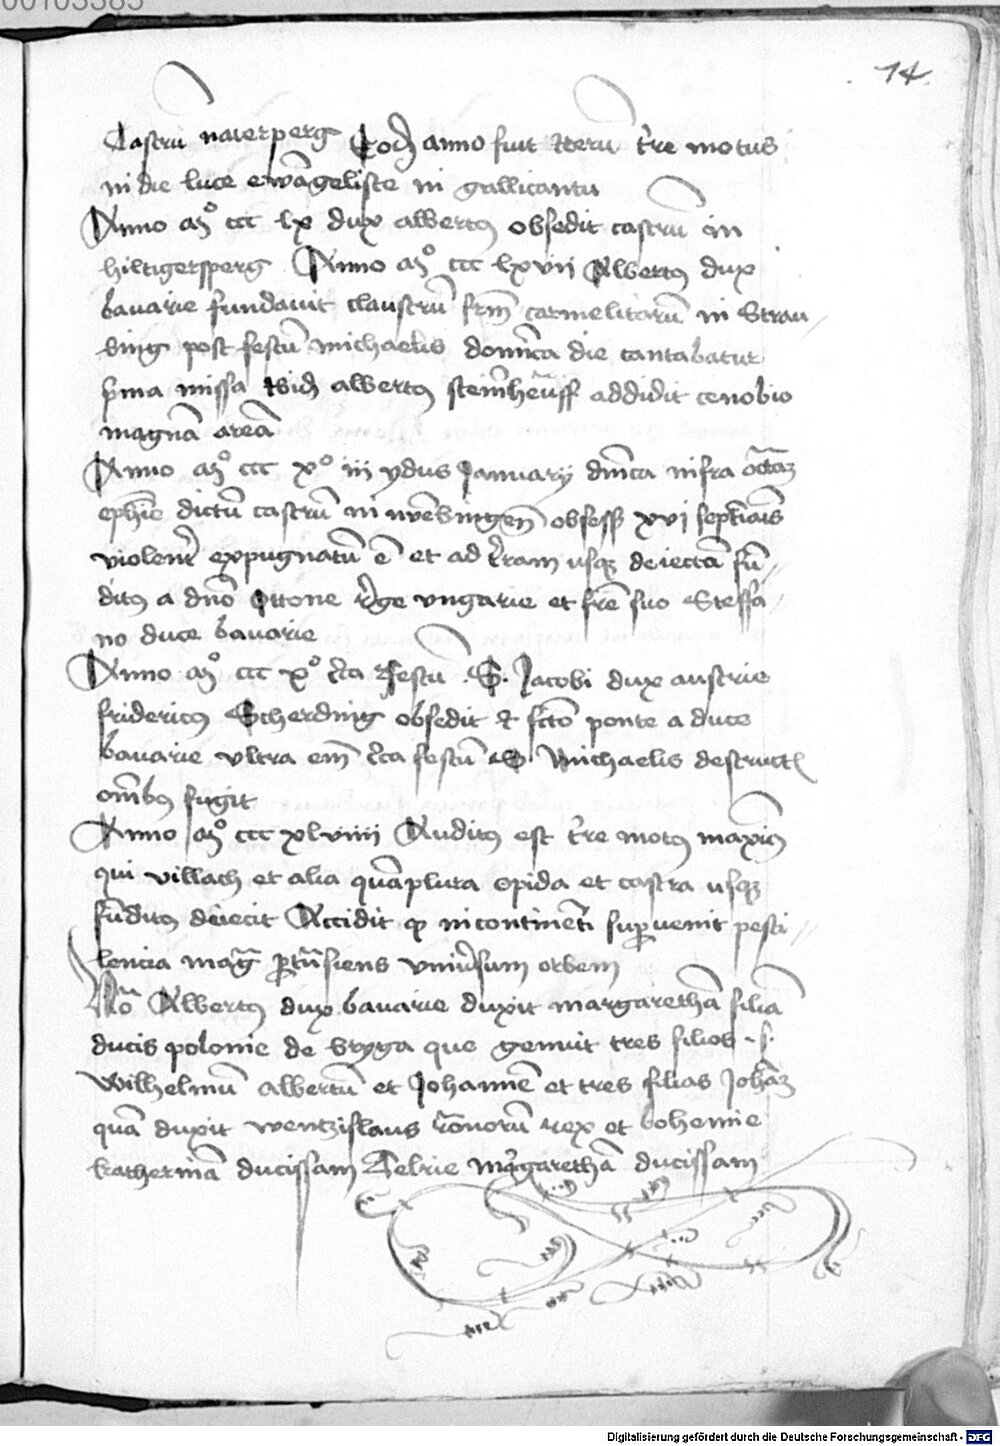 00103385
14
Castrū naterperg Eodꝫ anno fuit iterū t're motus
in die luce ewāgeliste in gallicantu
Anno mͦ ccc lx dux albertꝰ obsedit castrū in
hiltigersperg Anno mͦ ccc lxvii Albertꝰ dux
bauarie fundauit claustrū frm̄ carmelitarū in Strau
bing post festū michaelis domīca die cantabatur
p̄ma missa ibidꝫ albertꝰ steinhēuff addidit cenobio
magnā areā
Anno mͦ ccc xͦ iii ydus Januarij dm̄ca infra octāꝫ
ephīe dictū castrū in obsess xvi septīais
violent' expugnatū ē et ad t'ram usqꝫ deiectā fū
ditꝰ a dn̄o Ottone r'ge vngarie et frē suo Steffa
no duce bauarie
Anno mͦ ccc xͦ c'ca festū .S. Jacobi dux austrie
fridericꝰ Scherding obsedit et fc̄to ponte a duce
bauarie vltra em̄ c'ca festū .S. Michaelis destruct
om̄ibꝰ fugit
Anno mͦ ccc xlviiii Auditꝰ est t're motꝰ maxīꝰ
qui villach et alia quāplura opida et castra usqꝫ
fūditꝰ deiecit Accidit ꝙ incontinēti supervenit pesti
lencia maḡ p̄trāsiens vniv'sum orbem
Nō Albertꝰ dux bauarie duxit margarethā filiā
ducis polonie de bryga que genuit tres filios .s.
Wilhelmū albertū et Johannē et tres filias Johāꝫ
quā duxit wentzislaus rōnorū rex et bohemie
katherinā ducissam Gelrie mōgarethā ducissam
Digitalisierung gefördert durch die Deutsche Forschungsgemeinschaft - DFG